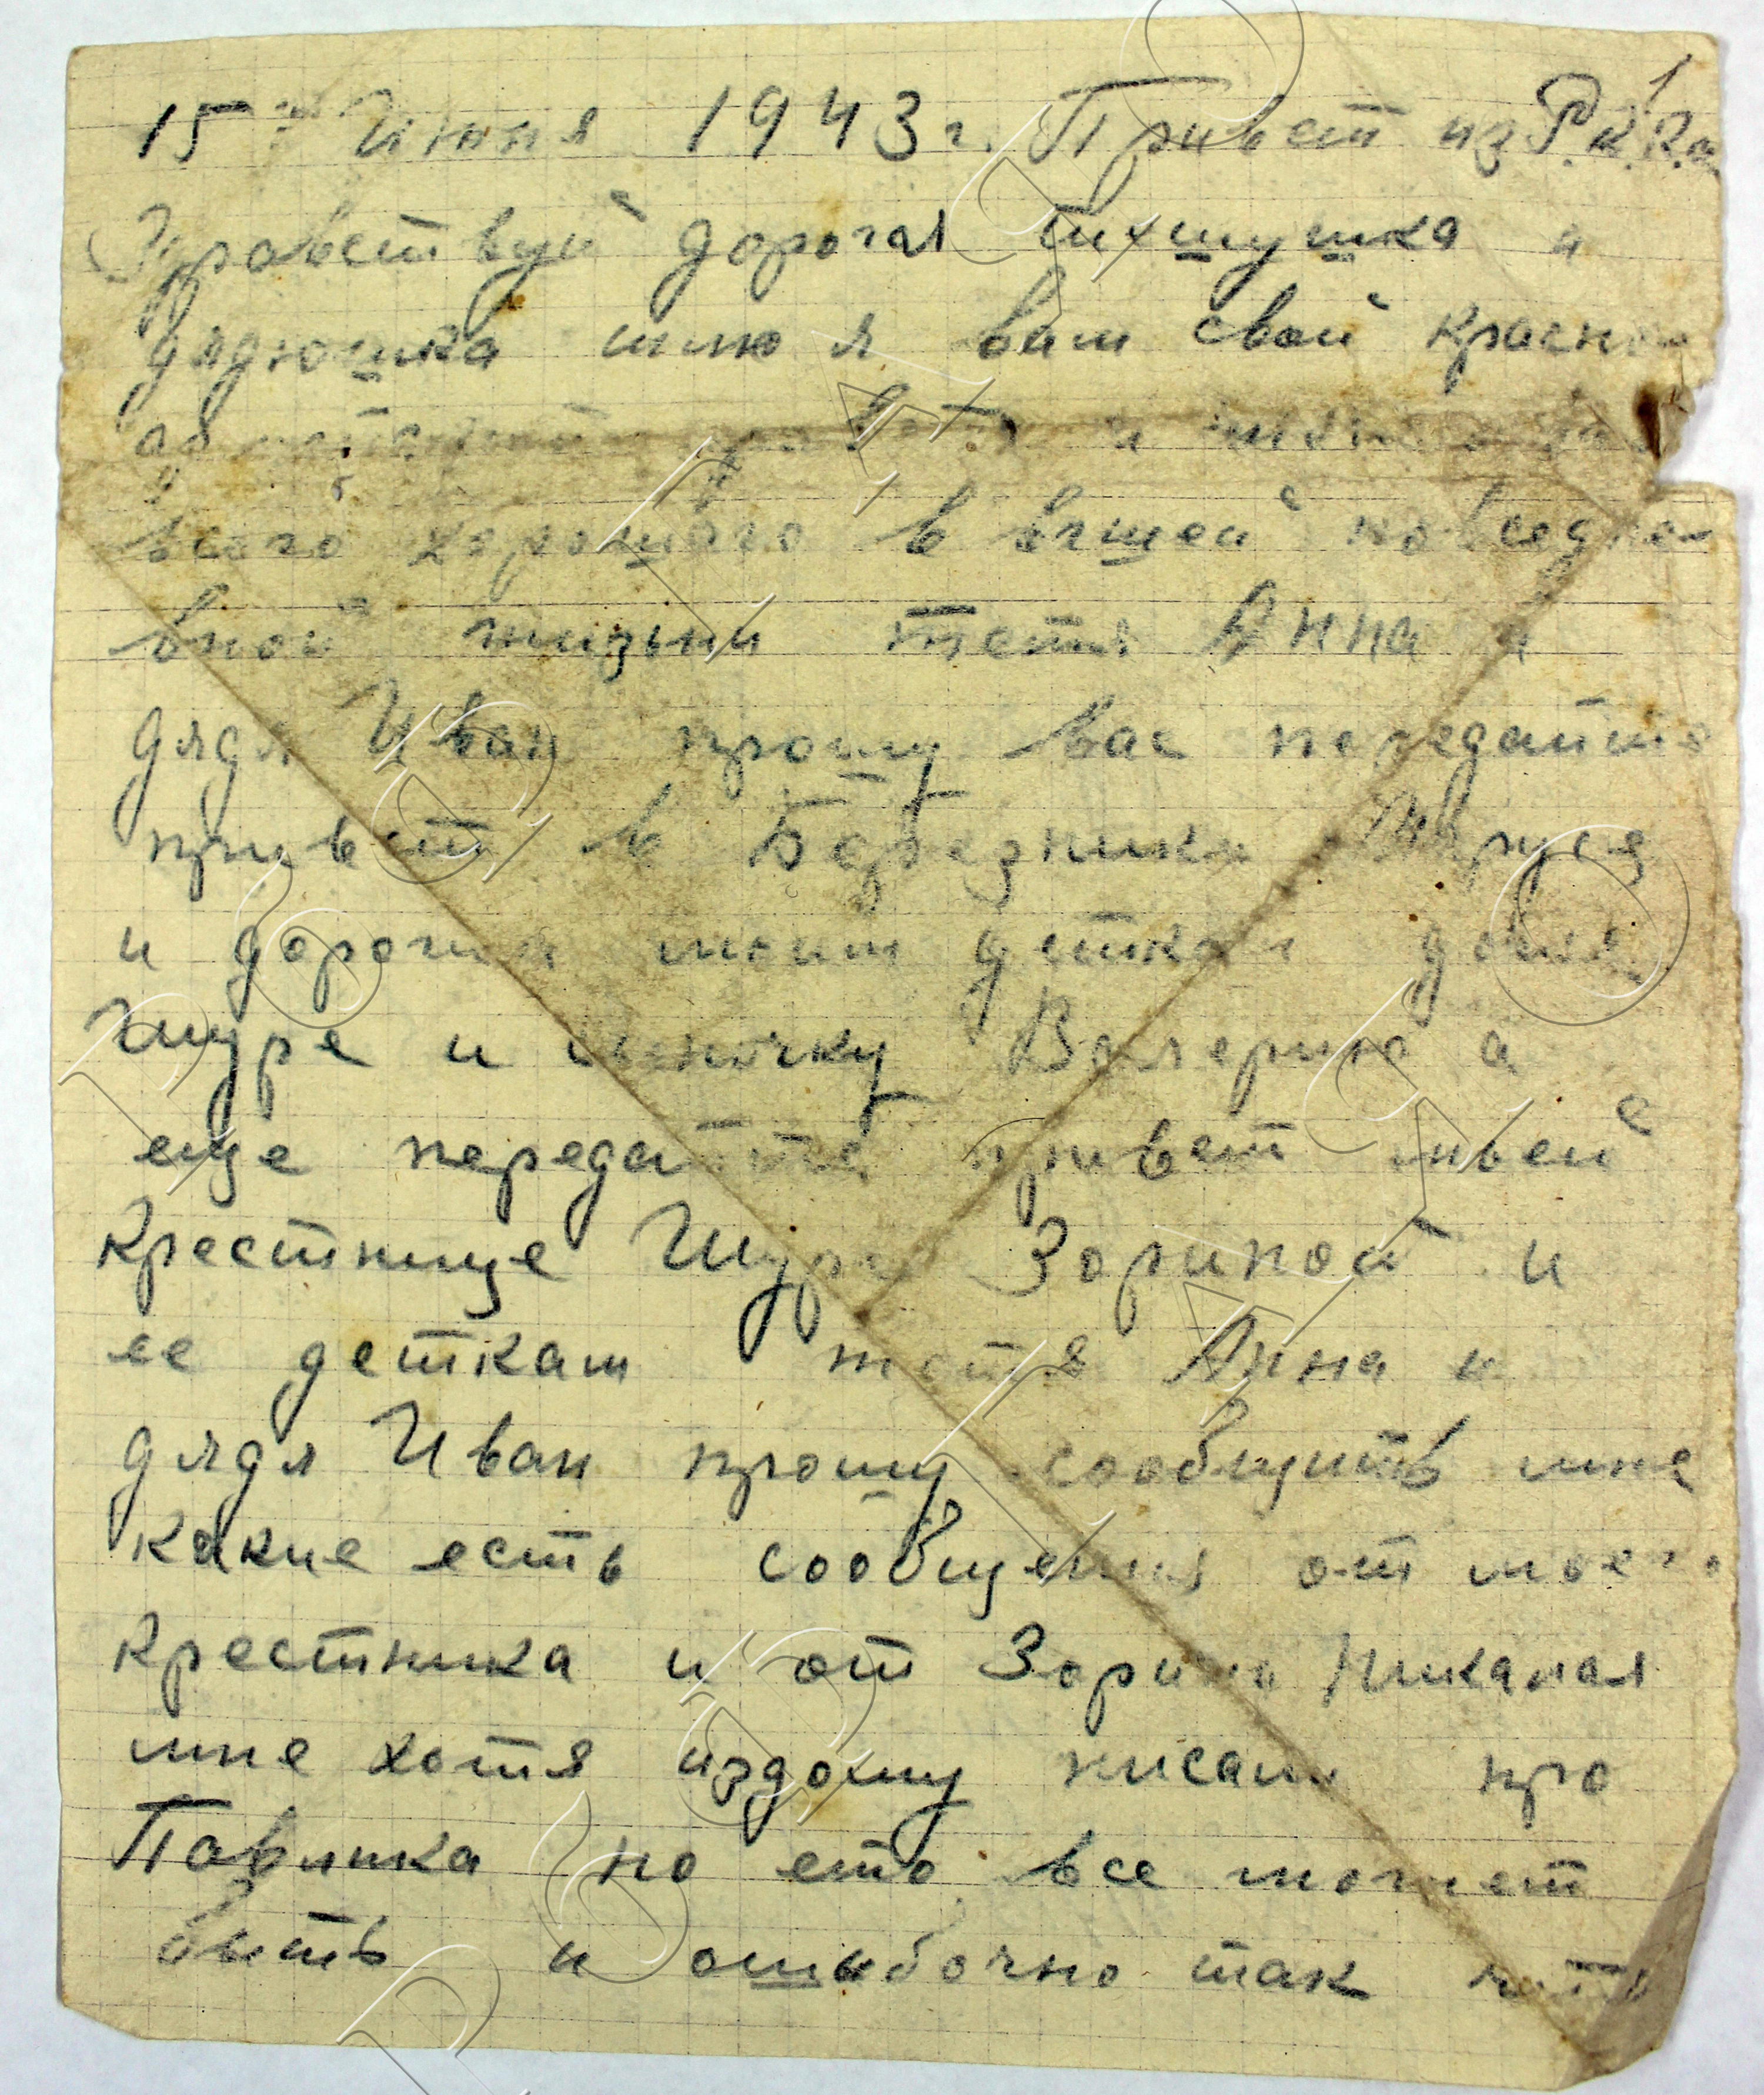 15 Июня 1943 г. Привет из Р.К.К.а
1
Здравствуй дорогая тихушушка и
дядюшка шлю я вам свой красно
и
всего хорошого в вашей повседне
вной жизьни тетя Анна и
дядя Иван прошу вас передайте
привет в
и дороги моим деткам
Шуре и сыночку Валерию а
еще передайте привет моей
Крестнице Шуре Зориной и
ее деткам тетя Анна и
дядя Иван прошу сообщить мне
какие есть сообщения от моего
крестника и от Зорина Никалая
мне хотя издому писали про
Павлика но ето все может
быть и ошибочно так